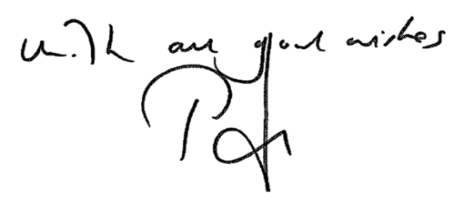 with all good wishes